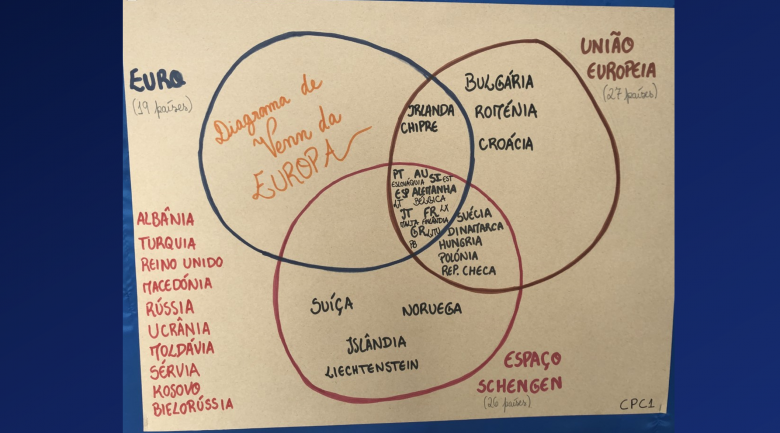 EURO
(19 países)
UNIÃO
EUROPEIA
(27 países)
Diagrama de
Venn da
EUROPA
BULGÁRIA
ROMÉNIA
CROÁCIA
IRLANDA
CHIPRE
PT AU SI EST
ESLOVÁQUIA
ESP ALEMANHA
LT BÉLGICA
IT FR LX
MALTA FINLÂNDIA
GR
PB
SUÉCIA
DINAMARCA
HUNGRIA
POLÓNIA
REP. CHECA
SUÍÇA
NORUEGA
ISLÂNDIA
LIECHTENSTEIN
ESPAÇO
SCHENGEN
(26 países)
ALBÂNIA
TURQUIA
REINO UNIDO
MACEDÓNIA
RÚSSIA
UCRÂNIA
MOLDÁVIA
SÉRVIA
KOSOVO
BIELORÚSSIA
CPC1